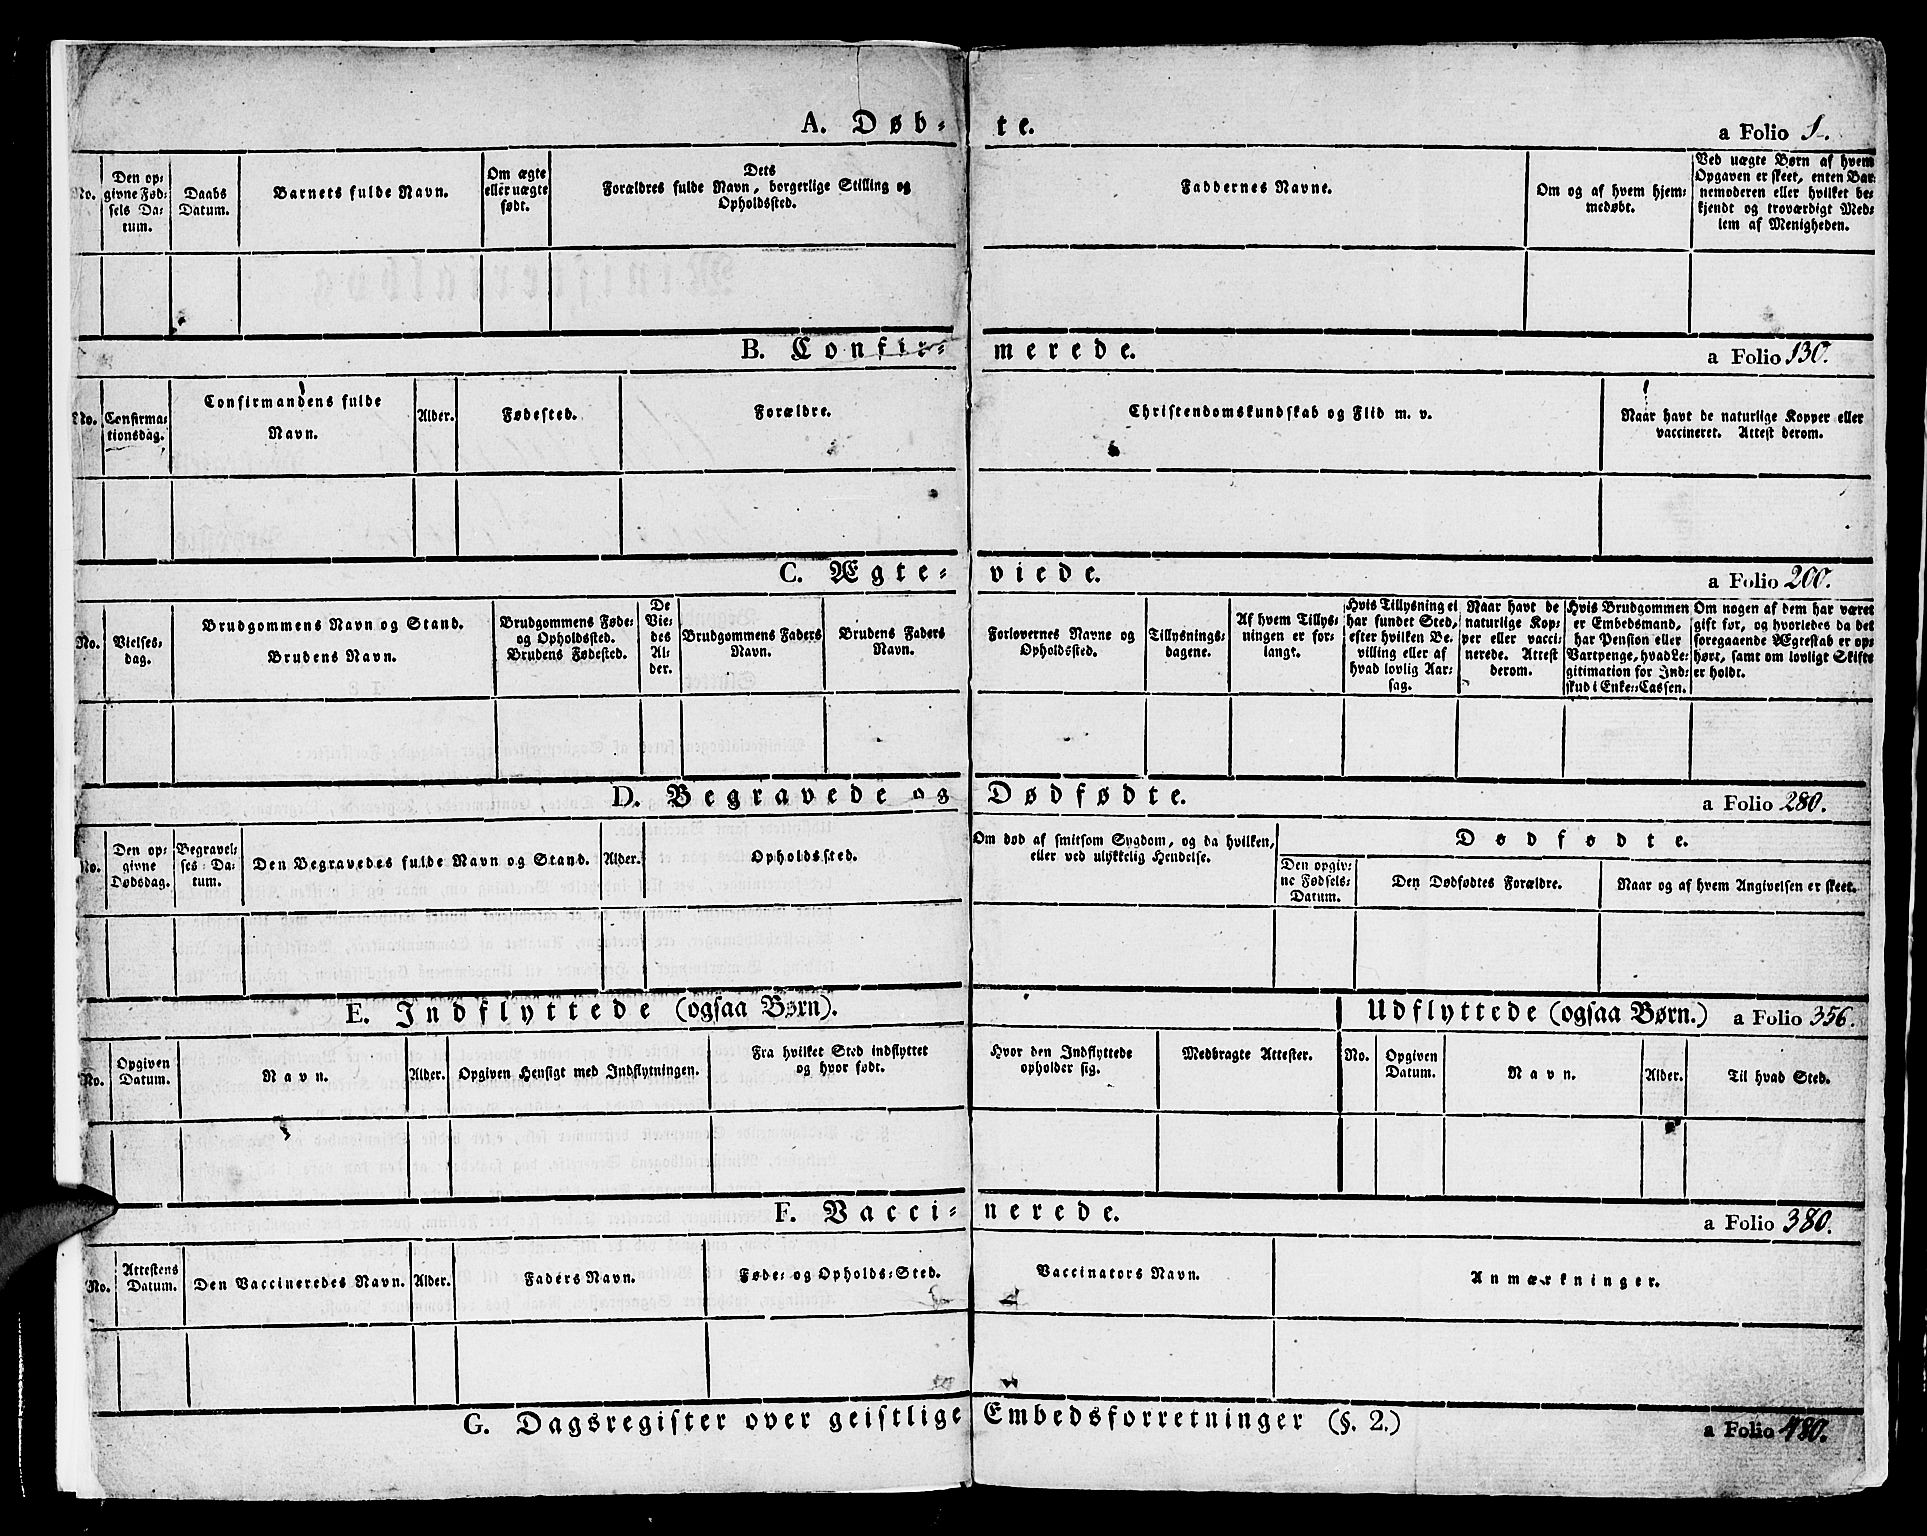 A. Døb- te. a Folio 1.
No.
Den op-
givne Fød-
sels Da-
tum.
Daabs
Datum.
Barnets fulde Navn.
Om ægte
eller uægte
født.
Dets
Forældres fulde Navn, borgerlige Stilling og
Opholdssted.
Faddernes Navne.
Om og af hvem hjem-
medøbt.
Ved uægte Børn af hvem
Opgaven er skeet, enten Bar-
nemoderen eller hvilket be-
kjendt og troværdigt Med-
lem af Menigheden.
B. Confir- merede. a Folio 130.
No.
Confirma-
tionsdag.
Confirmandens fulde
Navn.
Alder.
Fødested.
Forældre.
Christendomskundskab og Flid m. v.
Naar havt de naturlige Kopper eller
vaccineret. Attest derom.
C. Ægte- viede. a Folio 200.
No.
Vielses-
dag.
Brudgommens Navn og Stand.
Brudens Navn.
Brudgommens Føde-
og Opholdssted.
Brudens Fødested.
De
Vie-
des
Al-
der.
Brudgommens Faders
Navn.
Brudens Faders
Navn.
Forlovernes Navne og
Opholdssted.
Tillysnings-
dagene.
Af hvem Tillys-
ningen er for-
langt.
Hvis Tillysning ei
har fundet Sted,
efter hvilken Be-
villing eller af
hvad lovlig Aar-
sag.
Naar havt de
naturlige Kop-
per eller vacci-
nerede. Attest
derom.
Hvis Brudgommen
er Embedsmand,
har Pension eller
Vartpenge, hvad Le-
gitimation for Ind-
skud i Enke-Cassen.
Om nogen af dem har været
gift før, og hvorledes da det
foregaaende Ægteskab er op-
hørt, samt om lovligt Skifte
er holdt.
D. Begravede og Dødfødte. a Folio 280.
No.
Den op-
givne
Dødsdag.
Begravel-
ses-Da-
tum.
Den Begravedes fulde Navn og Stand.
Alder.
Opholdssted.
Om død af smitsom Sygdom, og da hvilken,
eller ved ulykkelig Hendelse.
Dødfødte.
Den opgiv-
ne Fødsels-
Datum.
Den Dødfødtes Forældre.
Naar og af hvem Angivelsen er skeet.
E. Indflyttede (ogsaa Børn). Udflyttede (ogsaa Børn.) a Folio 356.
No.
Opgiven
Datum.
Navn.
Alder.
Opgiven Hensigt med Indflytningen.
Fra hvilket Sted indflyttet
og hvor født.
Hvor den Indflyttede
opholder sig.
Medbragte Attester.
No.
Opgiven
Datum.
Navn.
Alder.
Til hvad Sted.
F. Vacci- nerede. a Folio 380.
No.
Attestens
Datum.
Den Vaccineredes Navn.
Alder.
Faders Navn.
Føde- og Opholds-Sted.
Vaccinators Navn.
Anmærkninger.
G. Dagsregister over geistlige Embedsforretninger (§. 2.) a Folio 480.